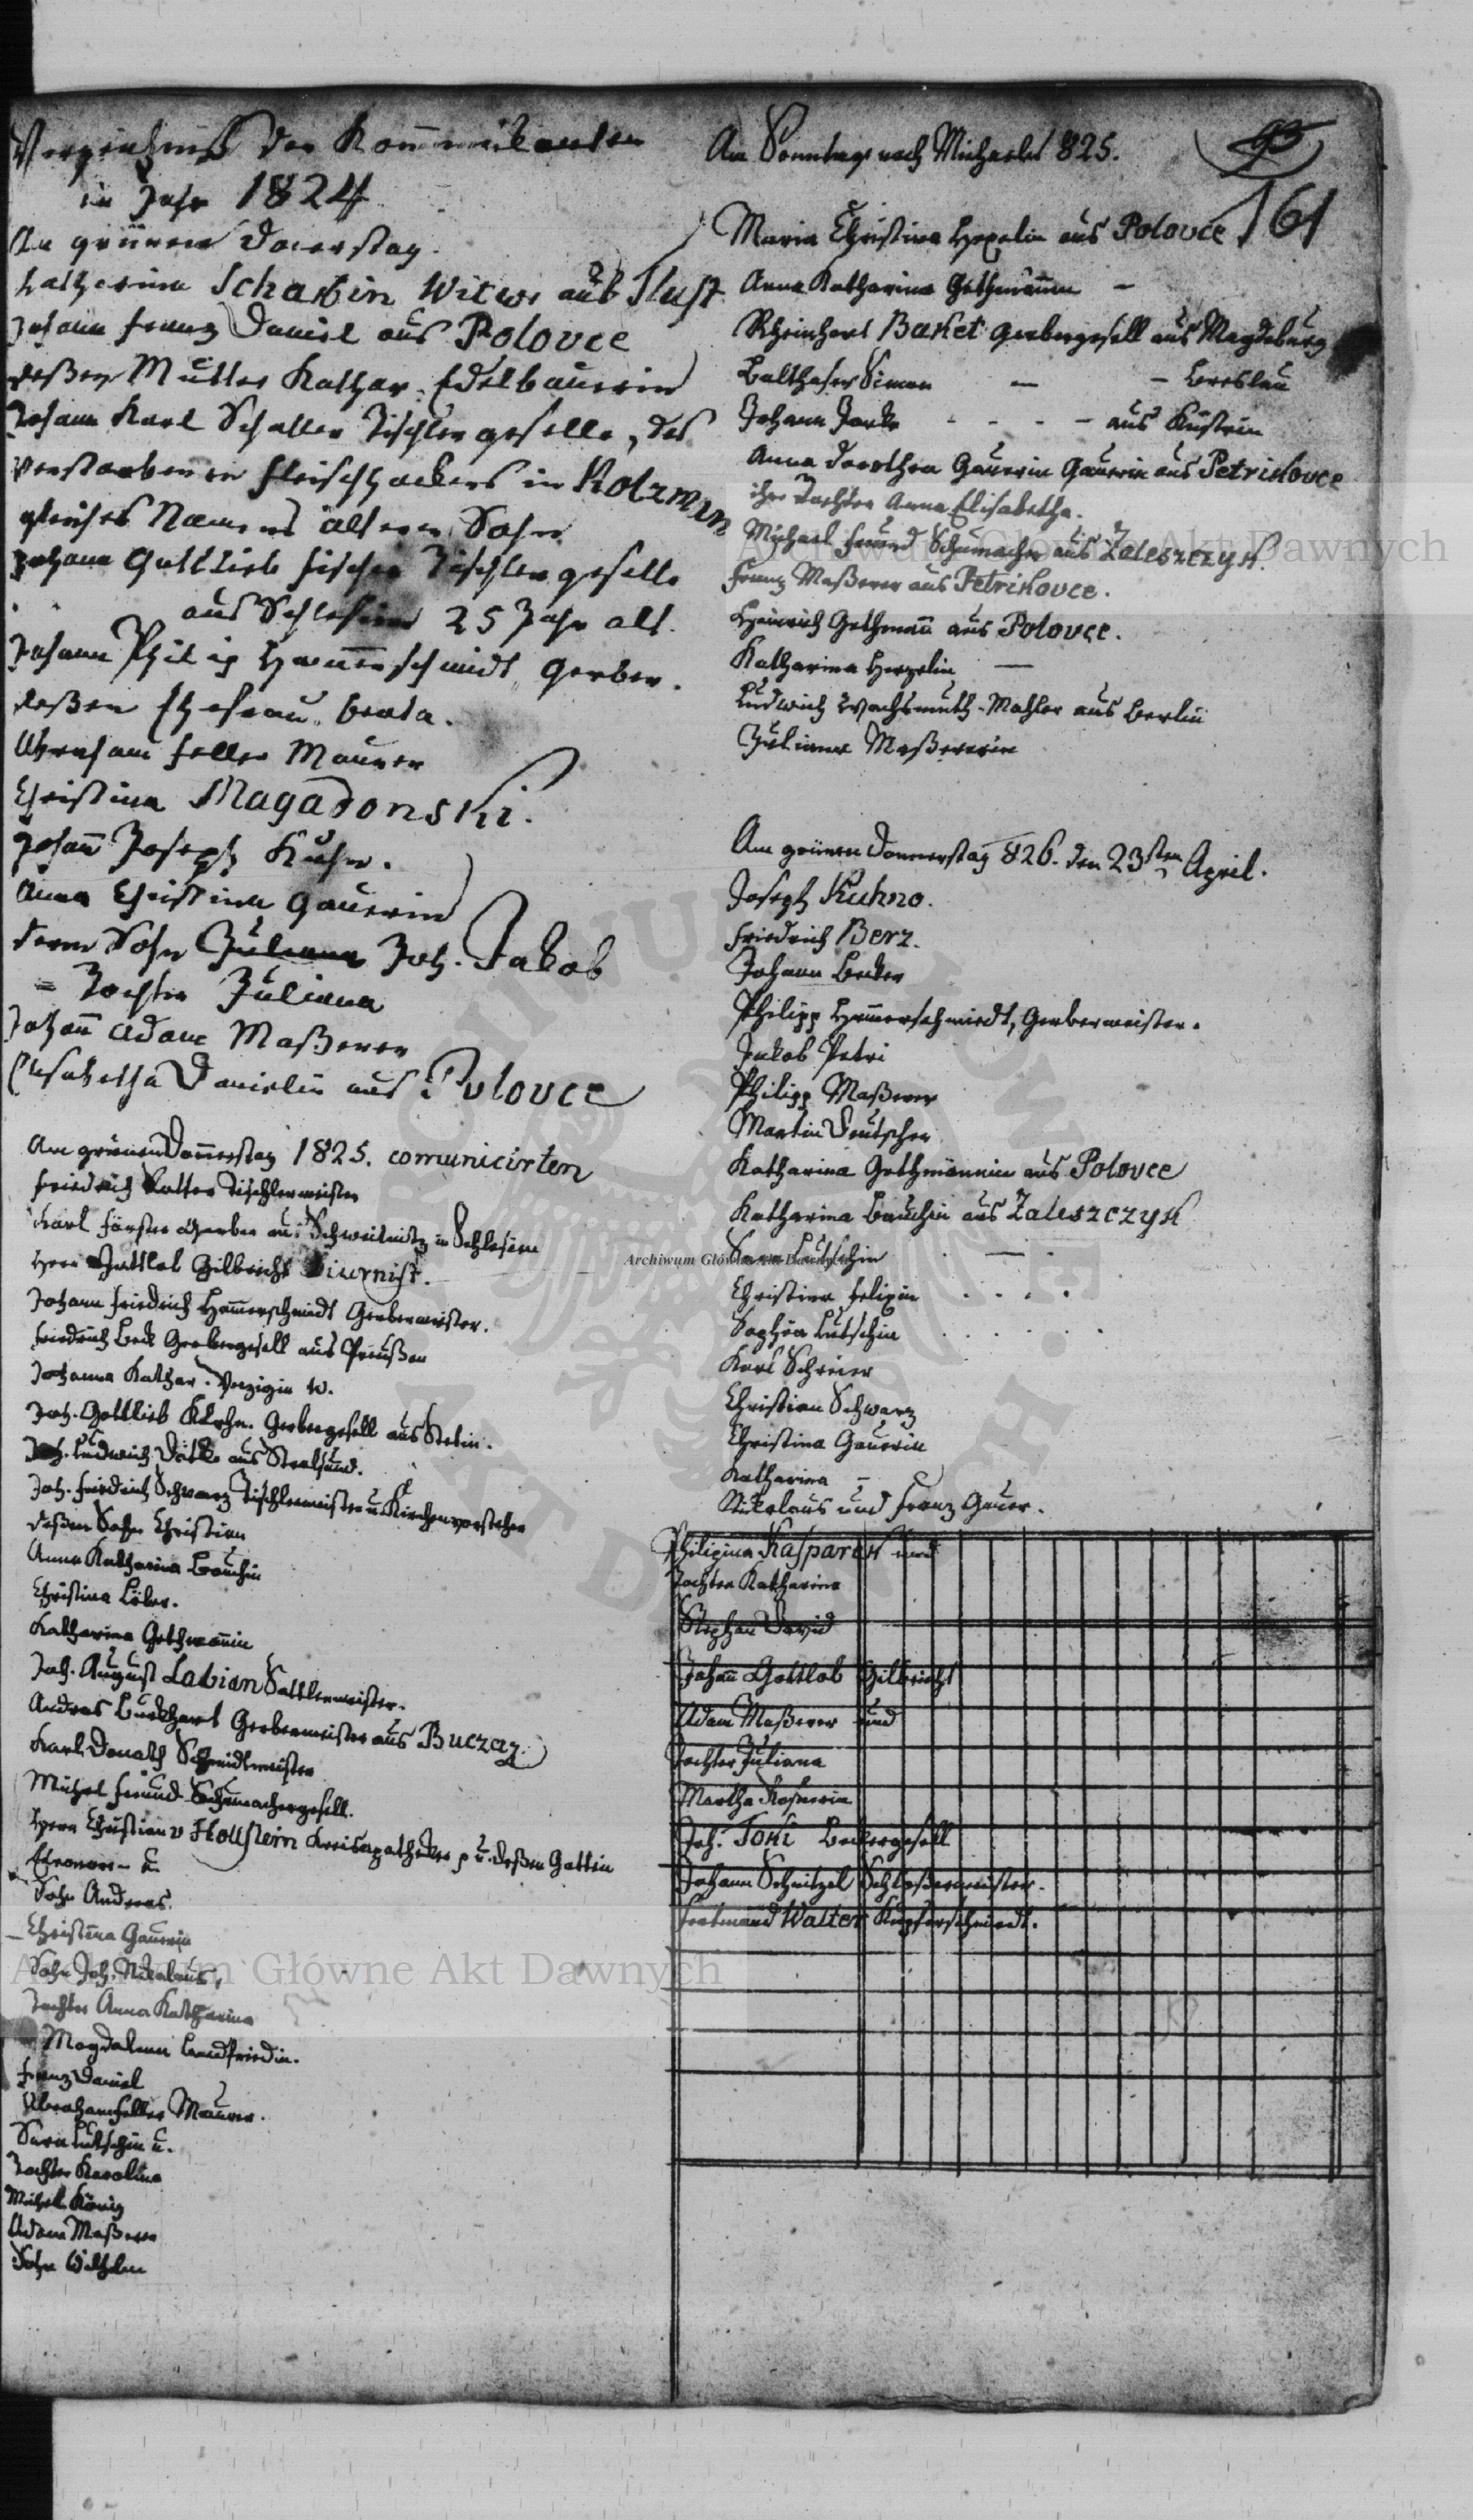 Verzeichniß der Kommunikanten
im Jahr 1824
Am grünen Donerstag.
Katherina Scharbin Witwe aus Ilust
Johann Franz Daniel aus Polovce
deßen Mutter Kathar. Edelbauerin
Johann Karl Schaller Tischlergeselle, des
verstorbenen Fleischhackers in Kotzman
gleiches Namens ältern Sohn
Johann Gottlieb Fischer Tischlergeselle
aus Schlesien 25 Jahr alt.
Johann Philip Ham̄erschmidt Gerber.
deßen Ehefrau Beata.
Abraham Feller Maurer
Christina Magadonski.
Johan̄ Joseph Kuhn.
Anna Christina Gauerin
deren Sohn Juliana Joh. Jakob
= Tochter Juliana
Johan̄ Adam Maßerer
Elisabetha Danielin aus Polovce
Am grünen Don̄erstag 1825. comunicirten
Friedrich Tischlermeister
Karl Förster Gerber aus Schweidnitz in Schlesien
Herr Gottlob Gilbricht Diurnist.
Johann Friedrich Ham̄erschmidt Gerbermeister.
Friedrich Beck Gerbergesell aus Preußen
Johanna Kathar. W.
Joh. Gottlieb Gerbergesell aus Stetin.
Joh. Ludwich aus Stralsund.
Joh. Friedrich Schwarz Tischlermeister u. Kirchenvorsteher
deßen Sohn Christian
Anna Katharina Bauchin
Christina Löber.
Katharina Gethman̄in
Joh. August Labian Sattlermeister.
Andras Burkhart Gerbermeister aus Buczaz.
Karl Donath Schmidtmeister
Michel Freund Schumachergesell.
Herr Christian v Hollstein Kreisapotheker u. deßen Gattin
Eleonore u.
Sohn Andreas.
Christina Gauerin
Sohn Joh. Nikolaus,
Tochter Anna Katharina
Magdalena Landfriedin.
Franz Daniel
Abraham Feller Maurer.
Sara Lutschin u.
Tochter Karolina
Michel König
Adam Maßerer
Sohn Wilhelm
Am Sonntage nach Michaelis 825.
161
Maria Christina Hezelin aus Polovce
Anna Katharina Gethman̄in —
Rheinhart Baket Gerbergesell aus Magdeburg
Balthaser Simon — — Breslau
Johann - - - - aus Küstrin
Anna Dorothea Gauerin Gauerin aus Petrikovce
ihre Tochter Anna Elisabetha.
Michael Freund Schumacher aus Zaleszczyk.
Franz Maßerer aus Petrikovce.
Heinrich Gethman̄ aus Polovce.
Katharina Hezelin —
Ludwich Wachsmuth - Mahler aus Berlin
Juliana Maßererin
Am grünen Donnerstag 826. den 23sten April.
Joseph Kuhno.
Friedrich Berz.
Johann Becker
Philipp Ham̄erschmiedt, Gerbermeister.
Jakob Petri
Philipp Maßerer
Martin Deutscher
Katharina Gethmännin aus Polovce
Katharina Bauchin aus Zaleszczyk
Sara Lutschin — .
Christina Felixin . . . .
Sophia Lutschin . . . . .
Karl Schrier
Christian Schwarz
Christina Gauerin
Katharina —
Nikolaus und Franz Gauer.
Philipina Kasparek und
Tochter Katharina
Stephan David
Johan̄ Gottlob Gilbricht
Adam Maßerer und
Tochter Juliana
Martha
Joh. Toki Beckergesell
Johann Schnitzel Schloßermeister.
Ferdinand Walter Kupferschmiedt.
Archiwum Główne Akt Dawnych
Archiwum Główne Akt Dawnych
Archiwum Główne Akt Dawnych